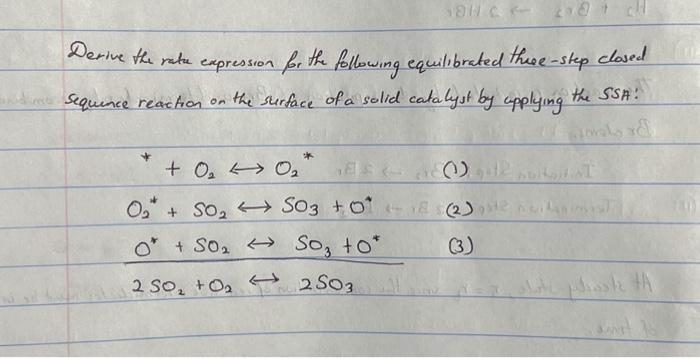 Derive the rate expression for the following equilibrated three-step closed
sequence reaction on the surface of a solid catalyst by applying the SSA:
* + O₂ ⟷ O₂* (1)
O₂* + SO₂ ⟷ SO₃ + O* (2)
O* + SO₂ ⟷ SO₃ + O* (3)
2 SO₂ + O₂ ⟷ 2SO₃